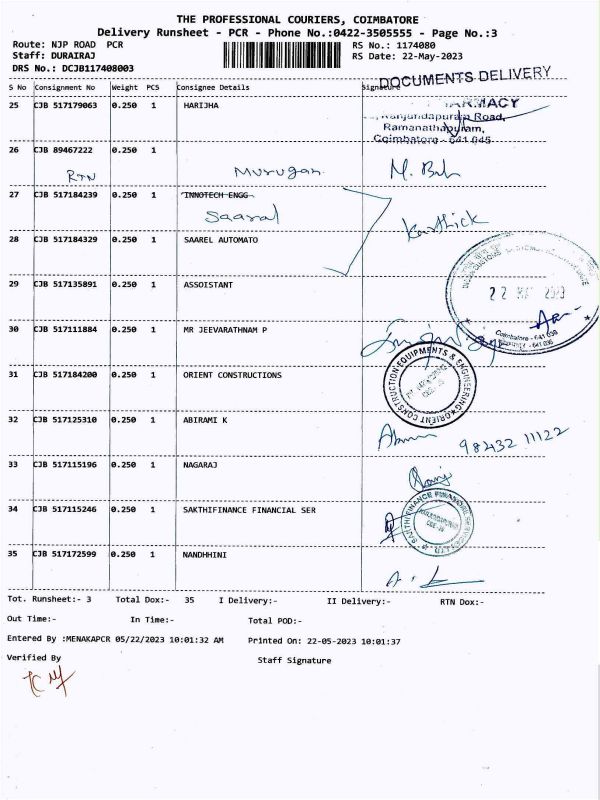 THE PROFESSIONAL COURIERS, COIMBATORE
Delivery Runsheet - PCR - Phone No.:0422-3505555 - Page No.:3
Route: NJP ROAD PCR RS No.: 1174080
Staff: DURAIRAJ RS Date: 22-May-2023
DRS No.: DCJB117408003
DOCUMENTS DELIVERY
S No Consignment No Weight PCS Consignee Details Signature
25 CJB 517179063 0.250 1 HARIJHA
Road,
Ramanathapuram,
Coimbatore - 641 045
26 CJB 89467222 0.250 1
RTN Murugan
27 CJB 517184239 0.250 1 INNOTECH ENGG
Saaral Karthick
28 CJB 517184329 0.250 1 SAAREL AUTOMATO
29 CJB 517135891 0.250 1 ASSOISTANT
22 MAY 2023
30 CJB 517111884 0.250 1 MR JEEVARATHNAM P
31 CJB 517184200 0.250 1 ORIENT CONSTRUCTIONS
CONSTRUCTION EQUIPMENTS & ENGINEERING ORIENT
32 CJB 517125310 0.250 1 ABIRAMI K
98432 11122
33 CJB 517115196 0.250 1 NAGARAJ
34 CJB 517115246 0.250 1 SAKTHIFINANCE FINANCIAL SER
35 CJB 517172599 0.250 1 NANDHHINI
Tot. Runsheet:- 3 Total Dox:- 35 I Delivery:- II Delivery:- RTN Dox:-
Out Time:- In Time:- Total POD:-
Entered By :MENAKAPCR 05/22/2023 10:01:32 AM Printed On: 22-05-2023 10:01:37
Verified By Staff Signature